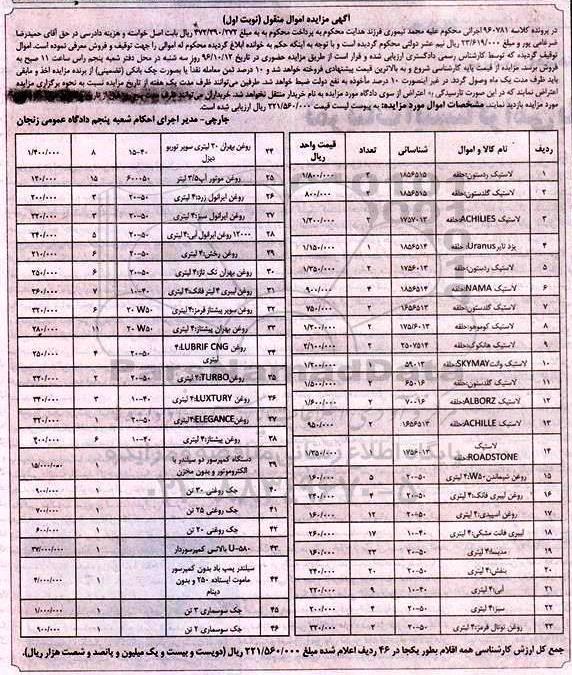 آگهی مزایده اموال منقول (نوبت اول)
در پرونده کلاسه ۹۶۰۷۸۱ اجرائی محکوم علیه محمد تیموری فرزند هدایت محکوم به پرداخت محکوم به به مبلغ ۳۷۲/۳۹۰/۲۷۳ ریال بابت اصل خواسته و هزینه دادرسی در حق آقای حمیدرضا
ضرغامی پور و مبلغ ۲۳/۶۱۹/۰۰۰ ریال نیم عشر دولتی محکوم گردیده است و با توجه به اینکه حکم به خوانده ابلاغ گردیده محکوم له اموالی را جهت توقیف و فروش معرفی نموده است. اموال
توقیف گردیده که توسط کارشناس رسمی دادگستری ارزیابی شده و قرار است از طریق مزایده حضوری در تاریخ ۹۶/۱۰/۱۲ روز سه شنبه در محل دفتر شعبه پنجم راس ساعت ۱۱ صبح به
فروش برسد مزایده از قیمت پایه کارشناسی شروع و به بالاترین قیمت پیشنهادی فروخته خواهد شد و ۱۰ درصد ثمن معامله نقدا یا بصورت چک بانکی (تضمینی) از برنده مزایده اخذ و مابقی
باید ظرف مدت یک ماه وصول گردد. در غیر اینصورت ۱۰ درصد ماخوذه به نفع دولت ضبط خواهد شد ضمنا طرفین می‌توانند ظرف مدت یک هفته از تاریخ مزایده نسبت به نحوه برگزاری مزایده
اعتراض نمایند که در این صورت تا رسیدگی به اعتراض از سوی دادگاه مورد مزایده به نام خریدار منتقل نخواهد شد. خریداران می‌توانند ظرف
مزایده بازدید نمایند. مشخصات اموال مورد مزایده: به پیوست لیست قیمت ۲۲۱/۵۶۰/۰۰۰ ریال ارزیابی شده است.
جارچی- مدیر اجرای احکام شعبه پنجم دادگاه عمومی زنجان
ردیف نام کالا و اموال شناسائی تعداد قیمت واحد ریال
۱ لاستیک ردستون:حلقه ۱۸۵۶۵۱۵ ۲ ۱/۸۰۰/۰۰۰
۲ لاستیک گلدستون:حلقه ۱۸۵۶۵۱۵ ۲ ۸۰۰/۰۰۰
۳ لاستیک ACHILIES:حلقه ۱۷۵۷۰۱۳ ۲ ۱/۳۰۰/۰۰۰
۴ یزد تایر Uranus:حلقه ۱۸۵۶۵۱۴ ۱ ۱/۱۵۰/۰۰۰
۵ لاستیک ردستون:حلقه ۱۷۵۶۰۱۳ ۲ ۱/۳۵۰/۰۰۰
۶ لاستیک NAMA:حلقه ۱۸۵۶۵۱۴ ۴ ۹۰۰/۰۰۰
۷ لاستیک گلدستون:حلقه ۱۶۵۶۵۱۳ ۲ ۷۵۰/۰۰۰
۸ لاستیک کومهو:حلقه ۱۷۵/۶۰۱۳ ۲ ۱/۲۰۰/۰۰۰
۹ لاستیک هانکوک:حلقه ۲۵۰۷۵۱۴ ۲ ۲/۱۰۰/۰۰۰
۱۰ لاستیک وانت SKYMAY:حلقه ۵۹۰۱۳ ۲ ۱/۲۰۰/۰۰۰
۱۱ لاستیک گلدستون:حلقه ۶۵۰۱۶ ۲ ۱/۵۰۰/۰۰۰
۱۲ لاستیک ALBORZ:حلقه ۷۰۰۱۶ ۲ ۱/۶۰۰/۰۰۰
۱۳ لاستیک ACHILLE:حلقه ۱۶۵۶۵۱۳ ۲ ۹۵۰/۰۰۰
۱۴ لاستیک ROADSTONE:حلقه ۱۷۵۶۰۱۳ ۱ ۱/۳۵۰/۰۰۰
۱۵ روغن نیماندن W۵۰:۴ لیتری ۲۰-۵۰ ۵ ۱۶۰/۰۰۰
۱۶ روغن لیبری فانک:۴ لیتری ۲۰-۵۰ ۴ ۲۴۰/۰۰۰
۱۷ روغن اسپیدی:۴ لیتری ۲۰-۵۰ ۱۲ ۱۶۰/۰۰۰
۱۸ لیبری فانت مشکی:۴ لیتری ۱۰-۴۰ ۱۷ ۲۶۰/۰۰۰
۱۹ مدیسا:۴ لیتری ۲۰-۵۰ ۲۳ ۱۶۰/۰۰۰
۲۰ بنفش:۴ لیتری ۲۰-۵۰ ۲۰ ۲۴۰/۰۰۰
۲۱ آبی:۴ لیتری ۱۰-۴۰ ۹ ۲۲۰/۰۰۰
۲۲ سبز:۴ لیتری ۲۰-۵۰ ۴ ۲۰۰/۰۰۰
۲۳ روغن توتال قرمز:۴ لیتری ۲۰-۵۰ ۲ ۳۲۰/۰۰۰
۲۴ روغن بهران ۲۰ لیتری سوپر توربو دیزل ۱۵-۴۰ ۸ ۱/۴۰۰/۰۰۰
۲۵ روغن موتور آپ:۳/۵ لیتر ۶۰۰-۵۰ ۱۵ ۱۳۰/۰۰۰
۲۶ روغن ایرانول زرد:۴ لیتری ۲۰-۵۰ ۳ ۲۰۰/۰۰۰
۲۷ روغن ایرانول سبز:۴ لیتری ۲۰-۵۰ ۳ ۲۲۰/۰۰۰
۲۸ ۱۲۰۰۰ روغن ایرانول آبی:۴ لیتری ۲۰-۵۰ ۵ ۲۴۰/۰۰۰
۲۹ روغن رخش:۴ لیتری ۲۰-۵۰ ۶ ۲۱۰/۰۰۰
۳۰ روغن بهران تک تاز:۴ لیتری ۲۰-۵۰ ۶ ۲۵۰/۰۰۰
۳۱ روغن لیبری ۴ لیتر فانک:۴ لیتری ۱۰-۴۰ ۷ ۲۶۰/۰۰۰
۳۲ روغن سوپر پیشتاز قرمز:۴ لیتری ۲۰ W۵۰ ۶ ۲۲۰/۰۰۰
۳۳ روغن بهران پیشتاز:۴ لیتری ۲۰ W۵۰ ۱۱ ۲۸۰/۰۰۰
۳۴ روغن LUBRIF CNG:۴ لیتری ۲۰-۵۰ ۴ ۲۵۰/۰۰۰
۳۵ روغن TURBO:۴ لیتری ۲۰-۵۰ ۲ ۳۲۰/۰۰۰
۳۶ روغن LUXTURY:۴ لیتری ۱۰-۴۰ ۳ ۳۴۰/۰۰۰
۳۷ روغن ELEGANCE:۴ لیتری ۲۰-۵۰ ۱ ۳۲۰/۰۰۰
۳۸ روغن پیشتاز:۴ لیتری ۱۰-۴۰ ۶ ۳۰۰/۰۰۰
۳۹ دستگاه کمپرسور دو سیلندر با الکتروموتور و بدون مخزن ۱ ۱۵/۰۰۰/۰۰۰
۴۰ جک روغنی ۳۰ تن ۱ ۹۰۰/۰۰۰
۴۱ جک روغنی ۲۵ تن ۱ ۷۰۰/۰۰۰
۴۲ جک روغنی ۲۰ تن ۱ ۶۰۰/۰۰۰
۴۳ U-۵۸۰ بالانس کمپرسوردار ۱ ۳۷/۰۰۰/۰۰۰
۴۴ سیلندر پمپ باد بدون کمپرسور ماموت ایستاده ۲۵۰ و بدون دینام ۱ ۴/۰۰۰/۰۰۰
۴۵ جک سوسماری ۳ تن ۱ ۱/۰۰۰/۰۰۰
۴۶ جک سوسماری ۲ تن ۱ ۹۰۰/۰۰۰
جمع کل ارزش کارشناسی همه اقلام بطور یکجا در ۴۶ ردیف اعلام شده مبلغ ۲۲۱/۵۶۰/۰۰۰ ریال (دویست و بیست و یک میلیون و پانصد و شصت هزار ریال).